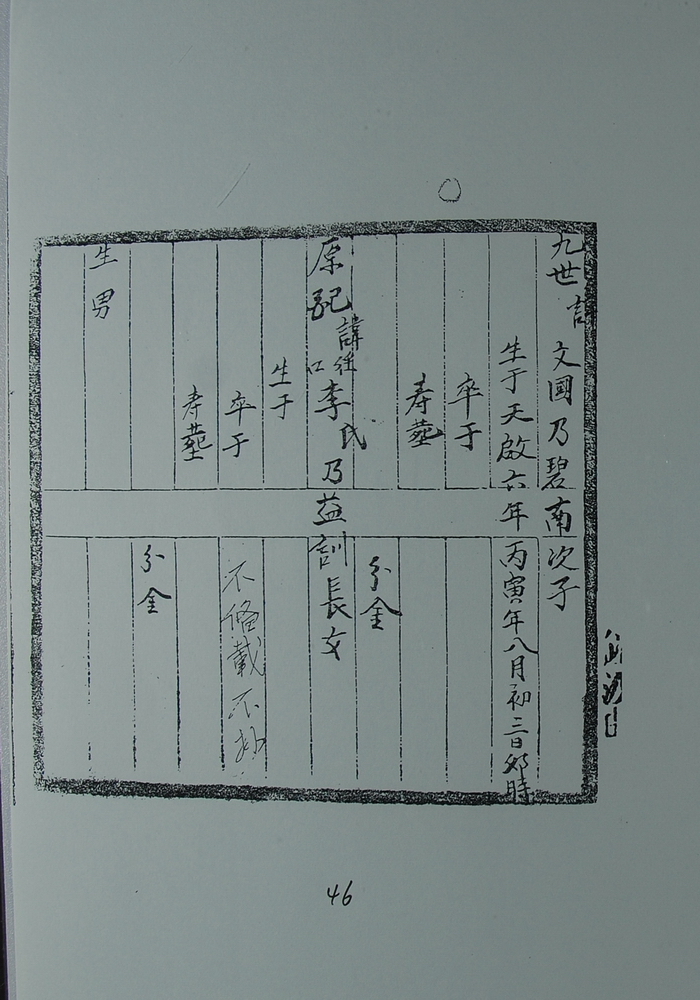 九世諱文國乃碧南次子
生于天啟六年丙寅年八月初三日卯時
卒于
寿塟 分金
原配諱 李氏乃益訓長女
生于
卒于 不俻載不抄
寿塟 分金
生男
46